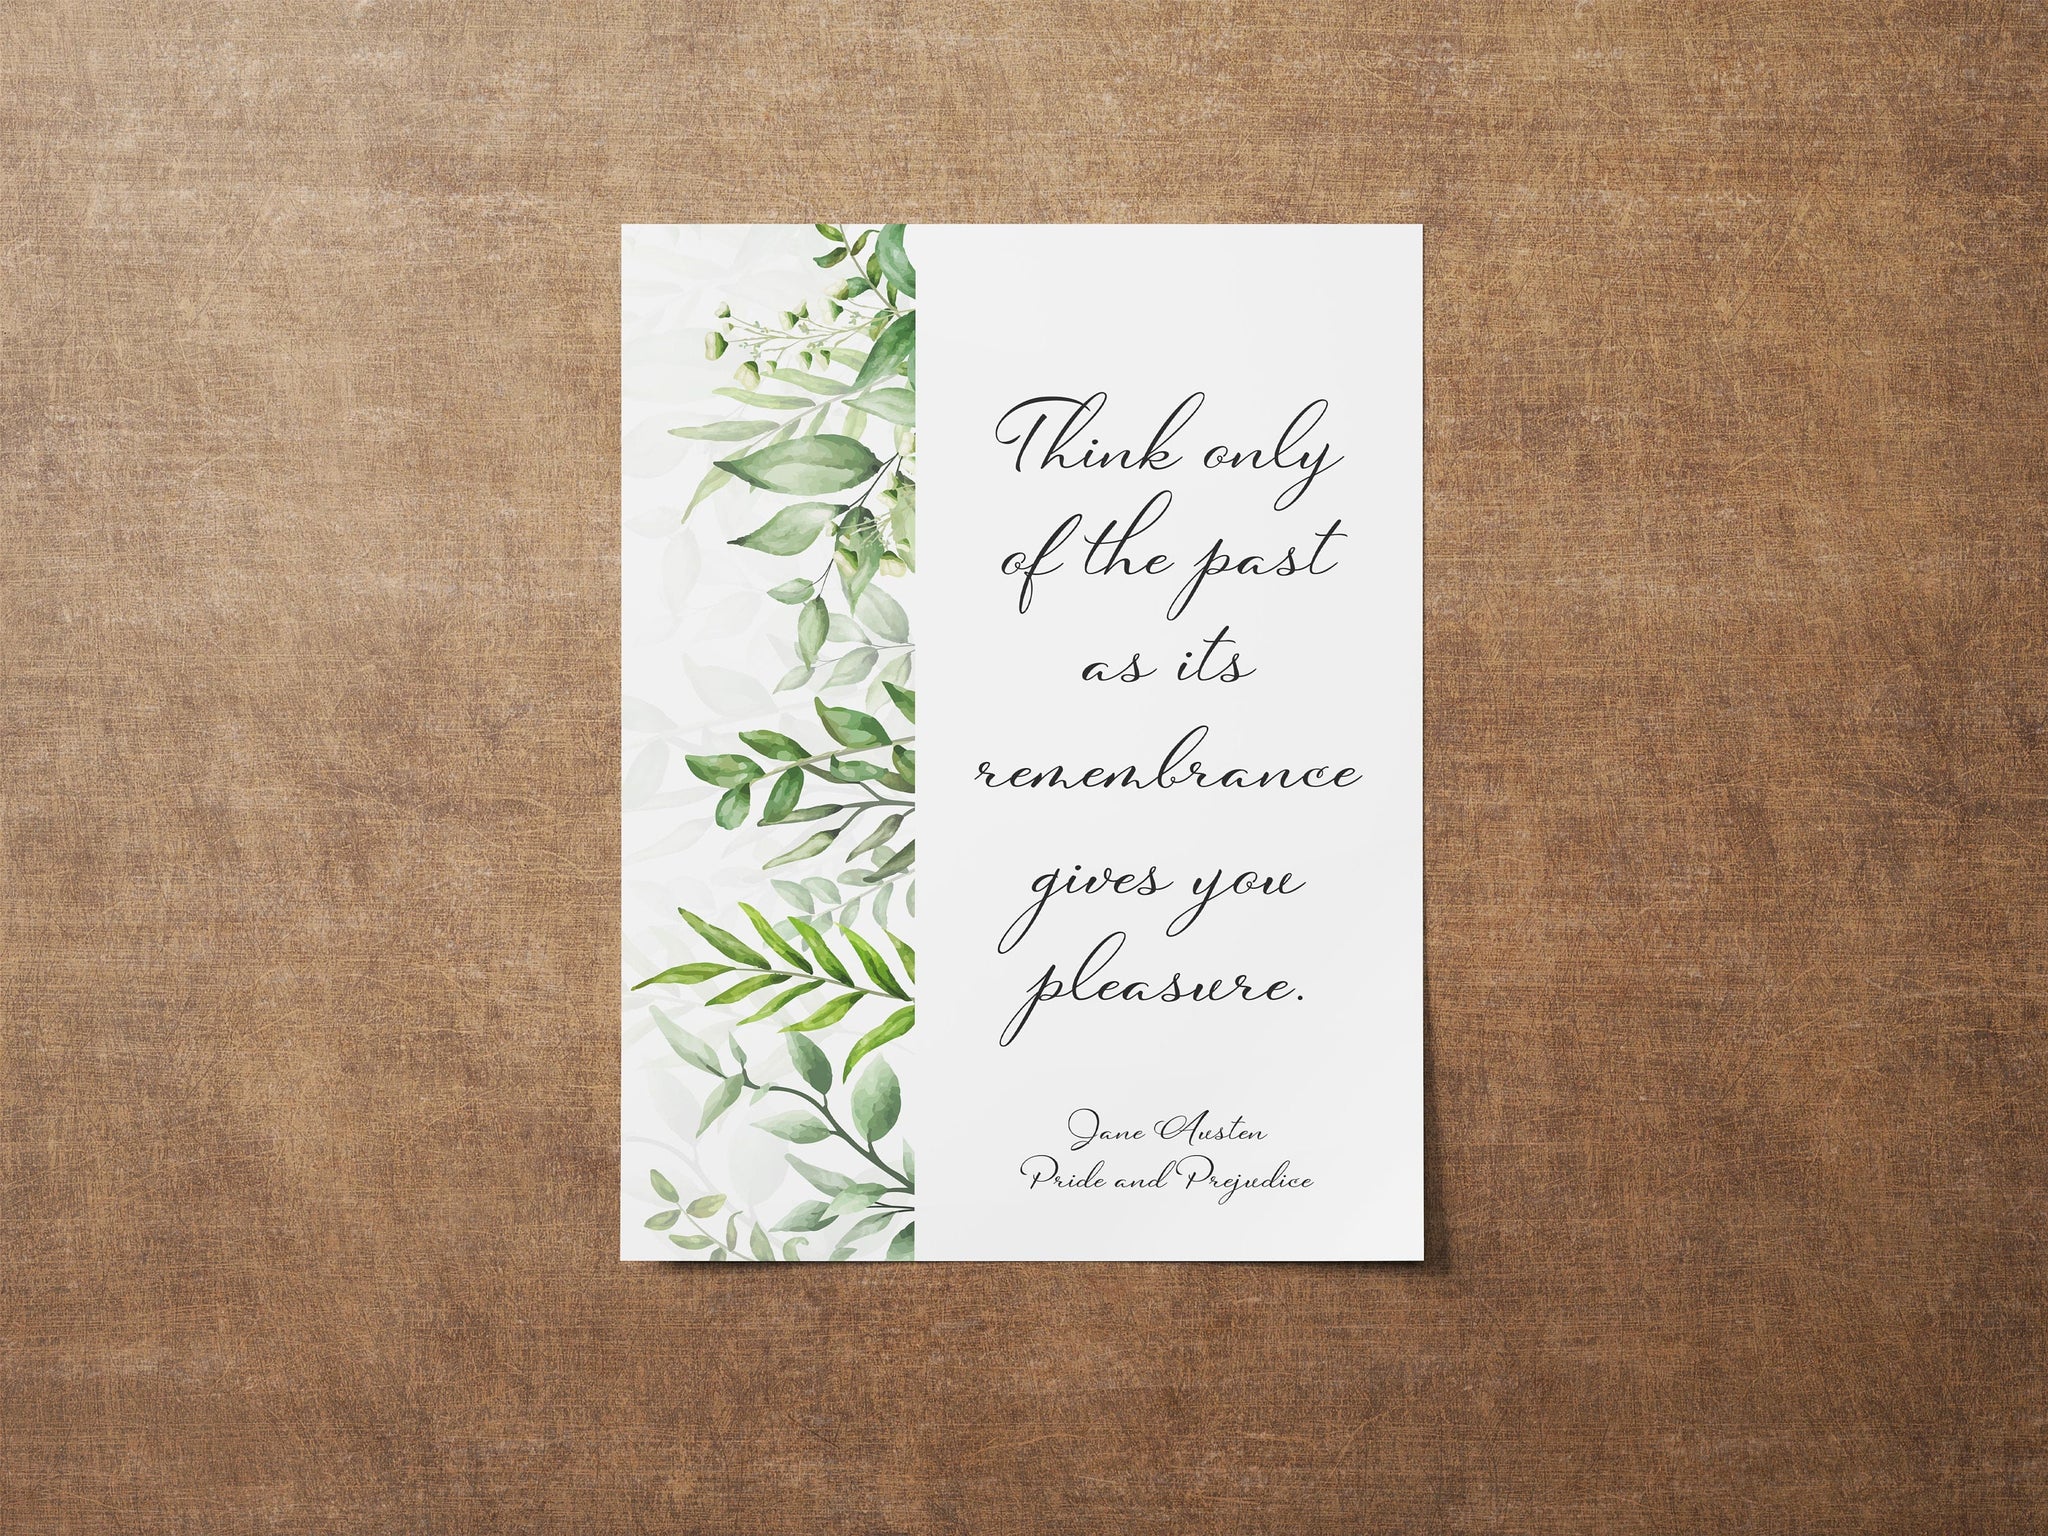 Think only
of the past
as its
remembrance
gives you
pleasure.
Jane Austen
Pride and Prejudice